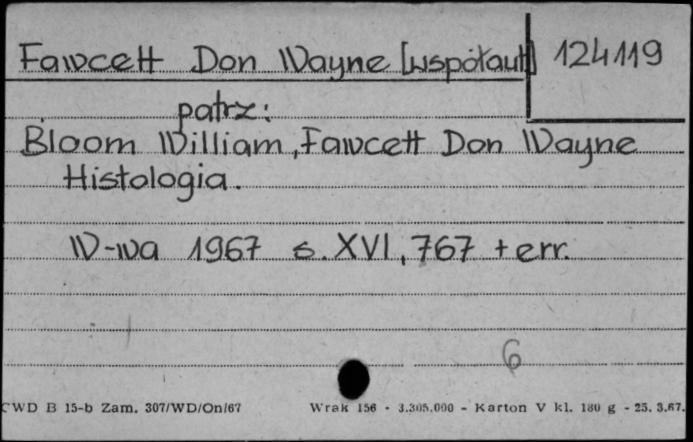 Fawcett Don Wayne [współaut] 124119
patrz:
Bloom William, Fawcett Don Wayne
Histologia.
W-wa 1967 s. XVI, 767 + err.
6
CWD B 15-b Zam. 307/WD/On/67 Wrak 156 - 3.305.000 - Karton V kl. 180 g - 25. 3.67.